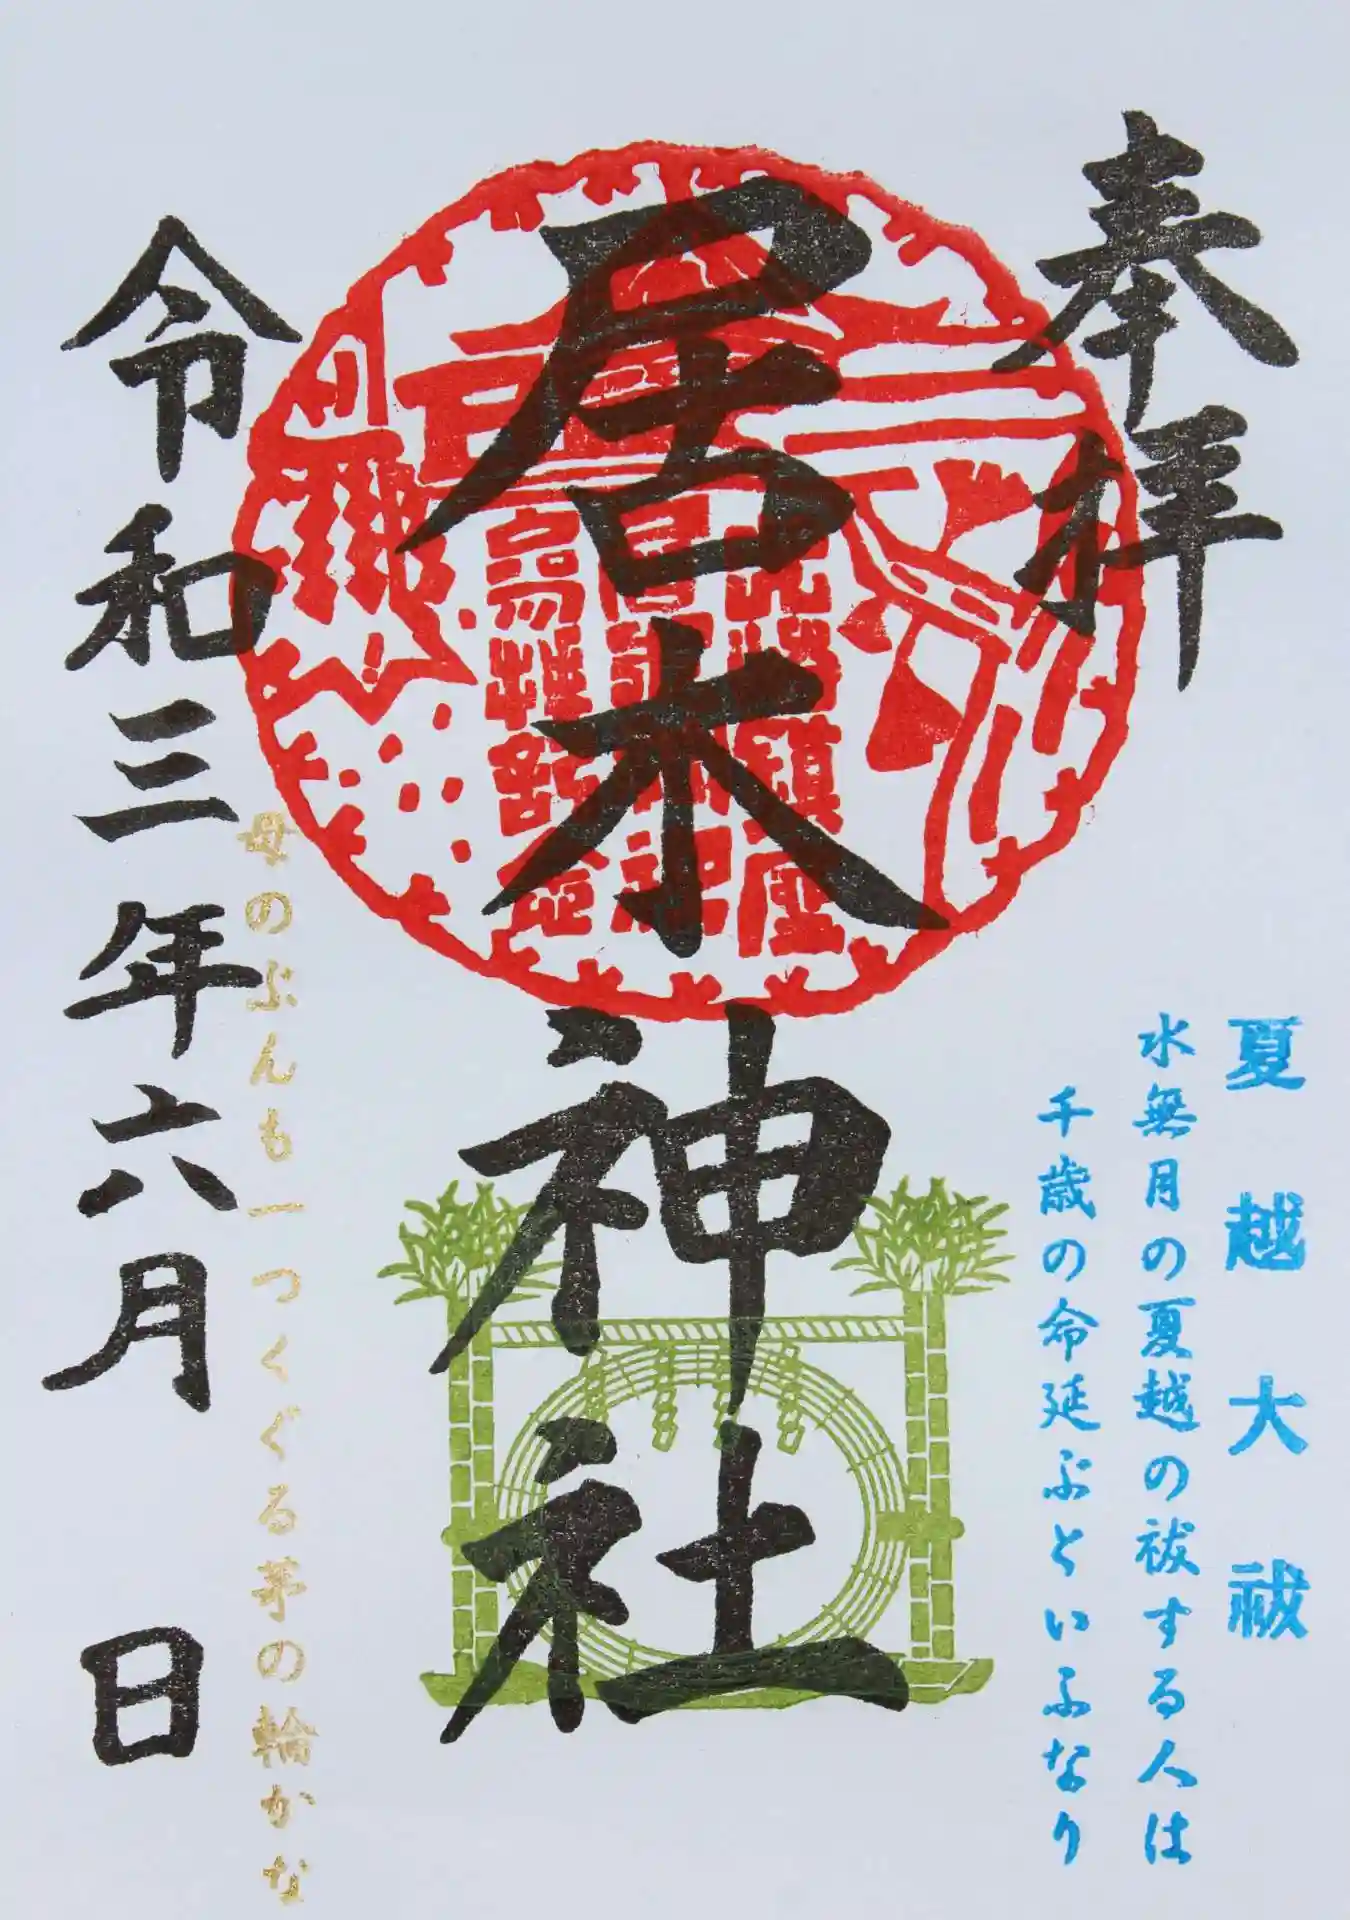 奉拝
夏越大祓
水無月の夏越の祓する人は
千歳の命延ぶといふなり
居木神社
母のぶんも一つくぐる茅の輪かな
令和三年六月 日